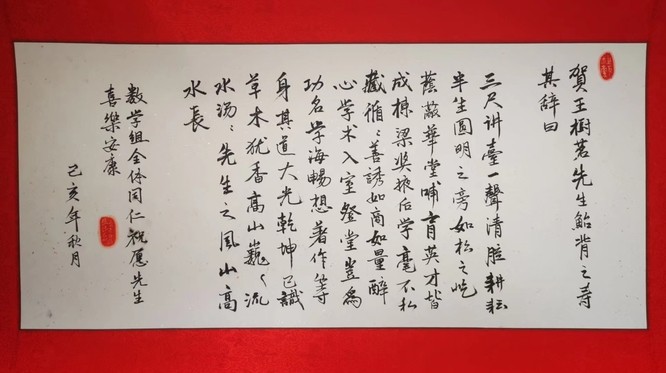 賀王樹茗先生鮐背之寿
其辞曰
三尺讲臺一聲清脆耕耘
半生圆明之旁如松之屹
蔭蔽華堂哺育英才皆
成棟梁奖掖后学毫不私
藏循〻善誘如商如量醉
心学术入室登堂豈為
功名学海暢想著作等
身其道大光乾坤已識
草木犹香高山巍〻流
水湯〻先生之風山高
水長
数学组全体同仁祝愿先生
喜樂安康
己亥年秋月